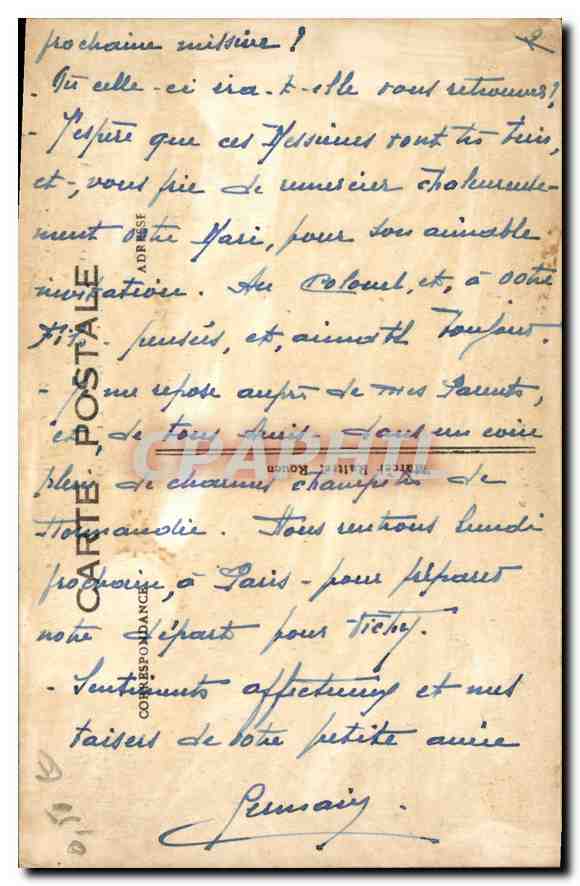 prochaine missive ?
- Où celle-ci ira-t-elle vous retrouver ?
- J'espère que ces Messieurs vont très bien,
et, vous prie de remercier chaleureuse-
ment votre Mari, pour son aimable
invitation. Au Colonel, et, à votre
Fils - pensées, et, amitiés toujours.
- Je me repose auprès de mes Parents,
et, de tous Amis, dans un coin
plein de charmes champêtres de
Normandie. Nous rentrons Lundi
prochain, à Paris - pour préparer
notre départ pour Vichy.
- Sentiments affectueux et mes
baisers de votre petite amie
Germaine.
CARTE POSTALE
ADRESSE
CORRESPONDANCE
Marcel Rouen
CPAPHIL
0,50